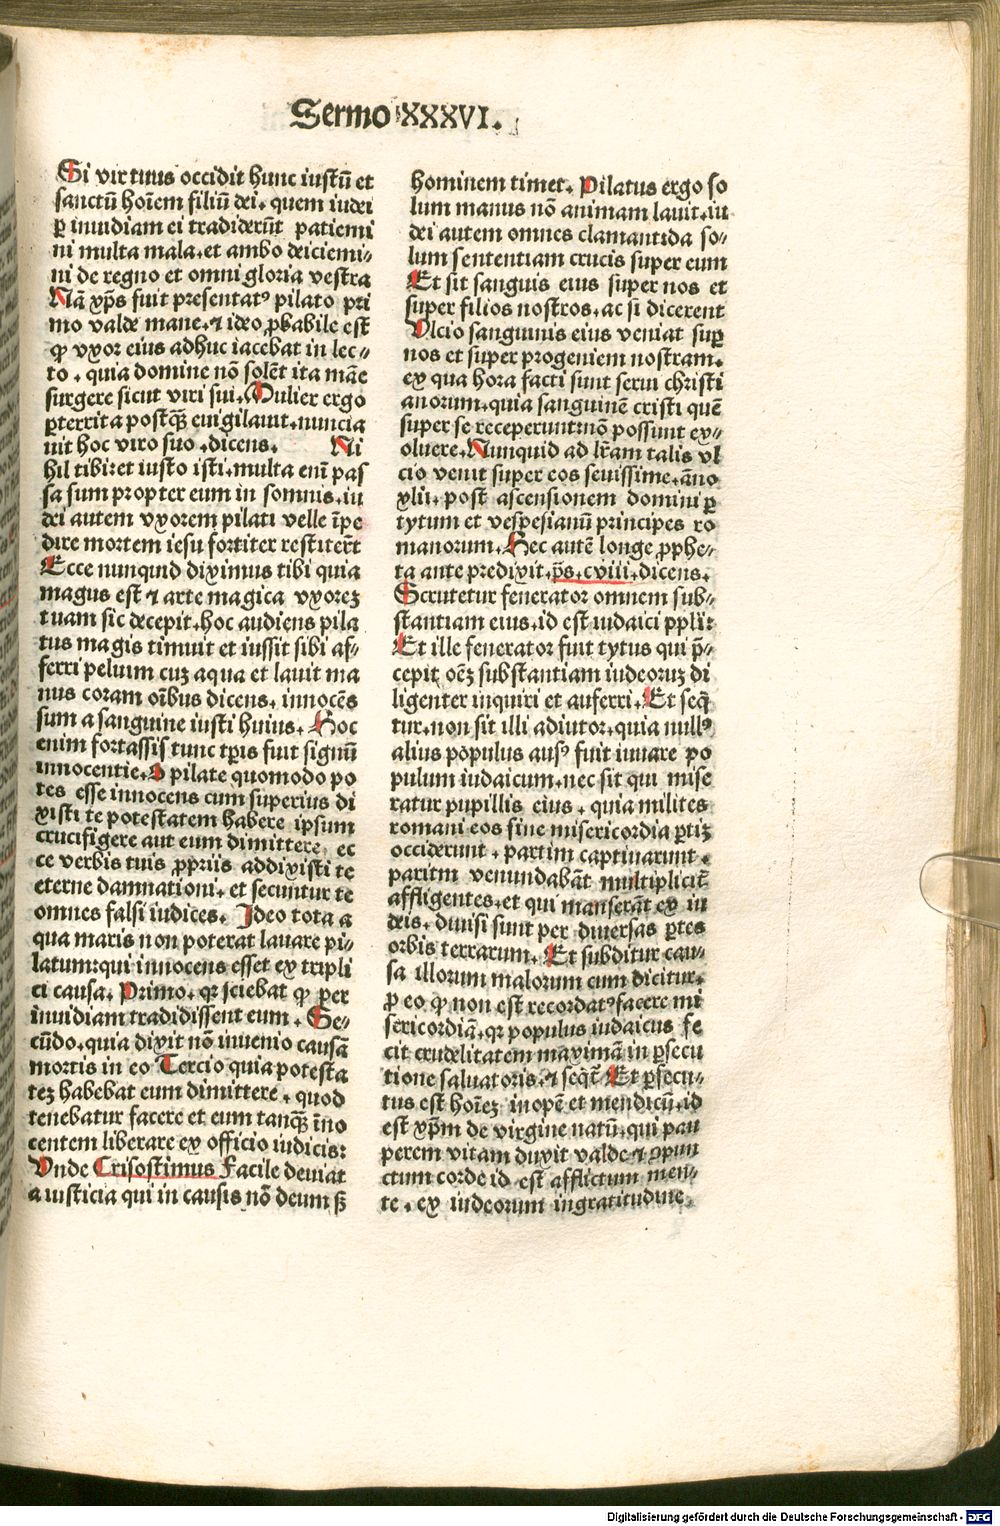 Sermo XXXVI.
Si vir tuus occidit hunc iustū et
sanctū hoīem filiū dei. quem iudei
ꝑ inuidiam ei tradiderūt patiemi
ni multa mala. et ambo deiciemi⸗
ni de regno et omni gloria vestra
Nā xp̄s fuit presentatꝰ pilato pri
mo valde mane. ⁊ ideo ꝓbabile est
ꝙ vxor eius adhuc iacebat in lec⸗
to . quia domine nō solēt ita māe
surgere sicut viri sui. Mulier ergo
ꝑterrita postqꝫ̄ euigilauit. nuncia
uit hoc viro suo . dicens. Ni
hil tibi:et iusto isti. multa enī pas
sa sum propter eum in somnis. iu
dei autem vxorem pilati velle īpe
dire mortem iesu fortiter restiterūt
Ecce nunquid diximus tibi quia
magus est ⁊ arte magica vxoreꝫ
tuam sic decepit. hoc audiens pila
tus magis timuit et iussit sibi af⸗
ferri peluim cuꝫ aqua et lauit ma
nus coram oībus dicens. innocēs
sum a sanguine iusti huius. Hoc
enim fortassis tunc tꝑis fuit signū
innocentie. O pilate quomodo po
tes esse innocens cum superius di
xisti te potestatem habere ipsum
crucifigere aut eum dimittere, ec
ce verbis tuis ꝓpriis addixisti te
eterne damnationi. et secuntur te
omnes falsi iudices. Ideo tota a
qua maris non poterat lauare pi⸗
latum:qui innocens esset ex tripli
ci causa. Primo. qꝛ sciebat ꝙ per
inuidiam tradidissent eum . Se⸗
cūdo. quia dixit nō inuenio causā
mortis in eo Tercio quia potesta
teꝫ habebat eum dimittere . quod
tenebatur facere et eum tanqꝫ̄ īno
centem liberare ex officio iudicis:
Vnde Crisostimus Facile deuiat
a iusticia qui in causis nō deum sꝫ
hominem timet. Pilatus ergo so
lum manus nō animam lauit. iu
dei autem omnes clamantida so⸗
lum sententiam crucis super eum
Et sit sanguis eius super nos et
super filios nostros. ac si dicerent
Vlcio sanguinis eius veniat suꝑ
nos et super progeniem nostram.
ex qua hora facti sunt serui christi
anorum. quia sanguinē cristi quē
super se receperuntnō possunt ex⸗
oluere. Nunquid ad lr̄am talis vl
cio venit super eos seuissime. āno
xlii. post ascensionem domini ꝑ
tytum et vespesianū principes ro
manorum. Hec autē longe ꝓphe⸗
ta ante predixit. ps̄. cviii. dicens.
Scrutetur fenerator omnem sub⸗
stantiam eius. id est iudaici ppl̄i:
Et ille fenerator fuit tytus qui p̄⸗
cepit oēꝫ substantiam iudeoruꝫ di
ligenter inquiri et auferri. Et seq̄
tur. non sit illi adiutor. quia nullꝰ
alius populus ausꝰ fuit iuuare po
pulum iudaicum. nec sit qui mise
ratur pupillis eius . quia milites
romani eos sine misericordia ꝑtiꝫ
occiderunt . partim captiuarunt .
paritm venundabāt multiplicit̄
affligentes. et qui manserāt ex iu
deis. diuisi sunt per diuersas ꝑtes
orbis terrarum. Et subditur cau⸗
sa illorum malorum cum dicitur.
ꝓ eo ꝙ non est recordatꝰ facere mi
sericordiā. qꝛ populus iudaicus fe
cit crudelitatem maximā in ꝑsecu
tione saluatoris. ⁊ seqt̄ Et ꝑsecu⸗
tus est hoīeꝫ inopē et mendicū. id
est xp̄m de virgine natū. qui pau
perem vitam duxit valde ⁊ ꝯpun
ctum corde id est afflictum men⸗
te . ex iudeorum ingratitudine.
Digitalisierung gefördert durch die Deutsche Forschungsgemeinschaft - DFG